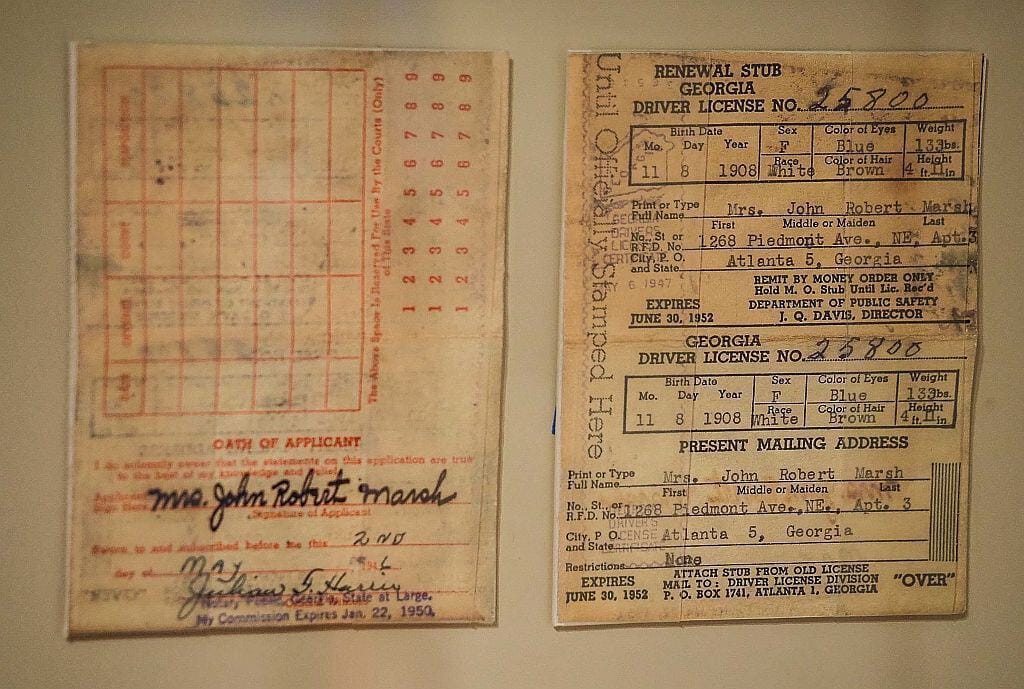 The Above Space Is Reserved For Use By the Courts (Only)
of This State
1 2 3 4 5 6 7 8 9
1 2 3 4 5 6 7 8 9
1 2 3 4 5 6 7 8 9
OATH OF APPLICANT
I do solemnly swear that the statements on this application are true
to the best of my knowledge and belief.
Mrs. John Robert Marsh
Signature of Applicant
Sworn to and subscribed before me this 2nd
day of May
State at Large.
My Commission Expires Jan. 22, 1950.
Until Officially Stamped Here
RENEWAL STUB
GEORGIA
DRIVER LICENSE NO. 25800
Birth Date Sex Color of Eyes Weight
Mo. Day Year F Blue 133 lbs.
Race Color of Hair Height
11 8 1908 White Brown 4 ft. 11 in
Print or Type
Full Name Mrs. John Robert Marsh
First Middle or Maiden Last
No., St. or
R.F.D. No. 1268 Piedmont Ave., NE, Apt.3
City, P. O.
and State Atlanta 5, Georgia
6 1947
REMIT BY MONEY ORDER ONLY
Hold M. O. Stub Until Lic. Rec'd
EXPIRES DEPARTMENT OF PUBLIC SAFETY
JUNE 30, 1952 J. Q. DAVIS, DIRECTOR
GEORGIA
DRIVER LICENSE NO. 25800
Birth Date Sex Color of Eyes Weight
Mo. Day Year F Blue 133 lbs.
Race Color of Hair Height
11 8 1908 White Brown 4 ft. 11 in
PRESENT MAILING ADDRESS
Print or Type
Full Name Mrs. John Robert Marsh
First Middle or Maiden Last
No., St., or
R.F.D. No. 1268 Piedmont Ave.,NE., Apt. 3
DRIVER'S
City, P. O.
and State Atlanta 5, Georgia
LICENSE
Restrictions None
ATTACH STUB FROM OLD LICENSE
EXPIRES MAIL TO: DRIVER LICENSE DIVISION "OVER"
JUNE 30, 1952 P. O. BOX 1741, ATLANTA 1, GEORGIA